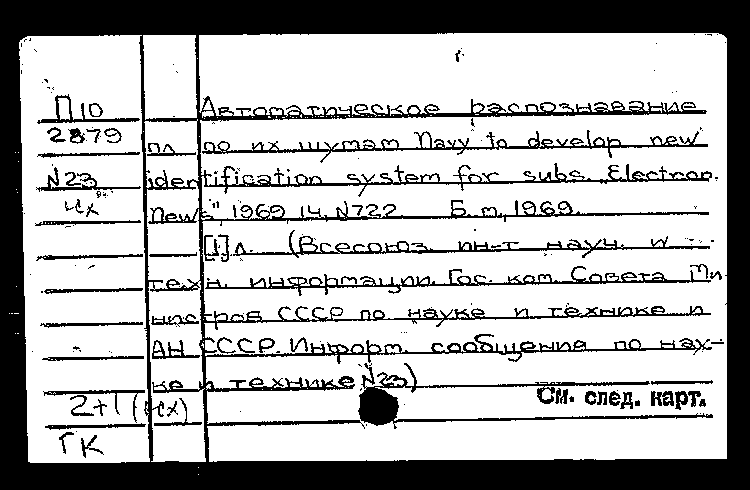 П10 Автоматическое распознавание
2879 пл по их шумам Navy to develop new
N23 identification system for subs. Electron.
чх News", 1969, 14, N722 Б.м., 1969.
[1]л. (Всесоюз. ин-т науч. и
техн. информации. Гос. ком. Совета Ми
нистров СССР по науке и технике и
АН СССР. Информ. сообщения по нау-
ке и технике N23)
2+1 (чх) См. след. карт.
ГК